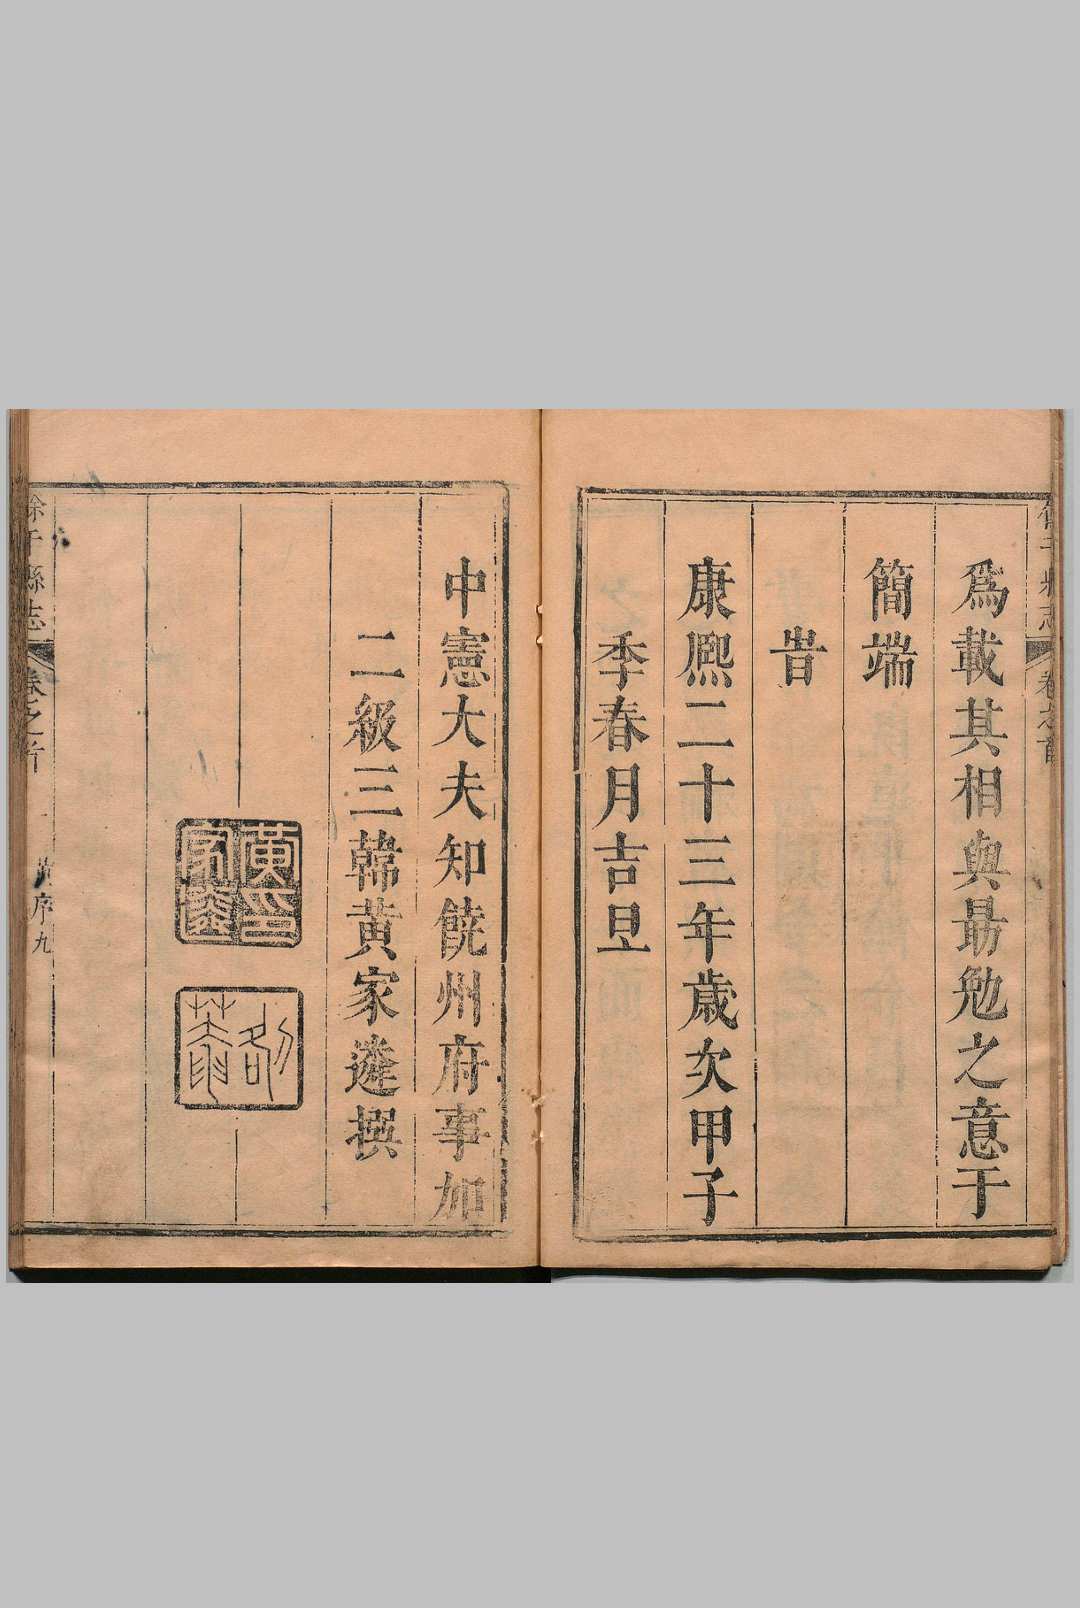 餘干縣志 卷之首
爲載其相與勗勉之意于
簡端
旹
康熙二十三年歲次甲子
季春月吉旦
中憲大夫知饒州府事加
二級三韓黃家遴撰
黃印
家遴
餘干縣志 卷之首 黃序 九